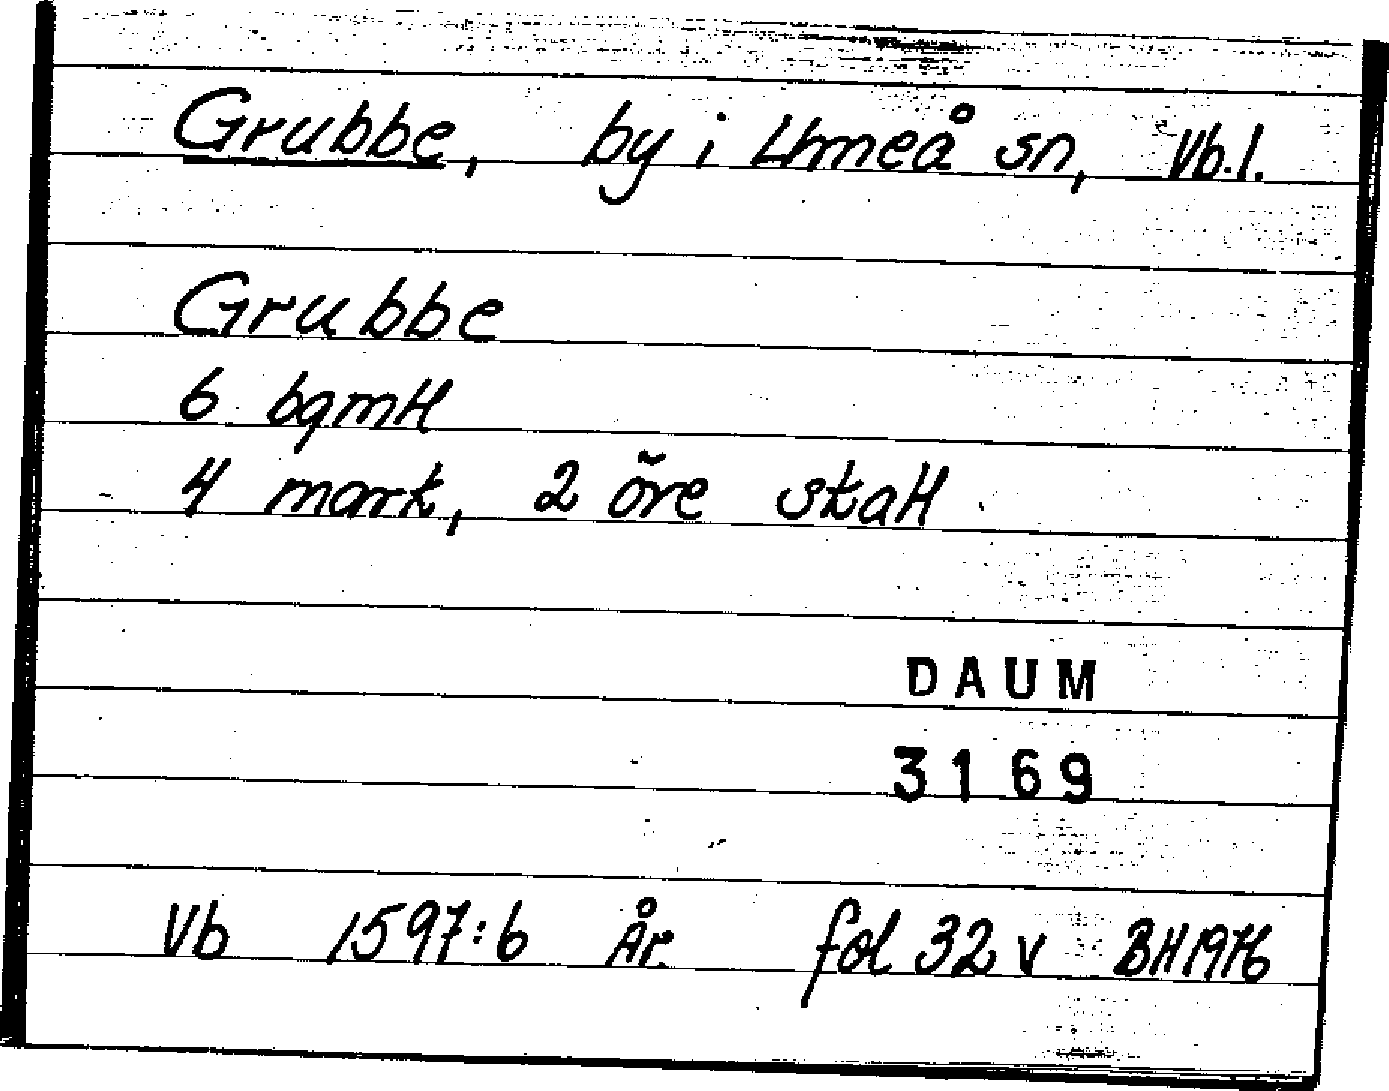 Grubbe, by i Umeå sn, Vb.l.
Grubbe
6 bgmH
4 mark, 2 öre skatt
DAUM
3169
Vb 1597:6 År fol 32 v BH1976